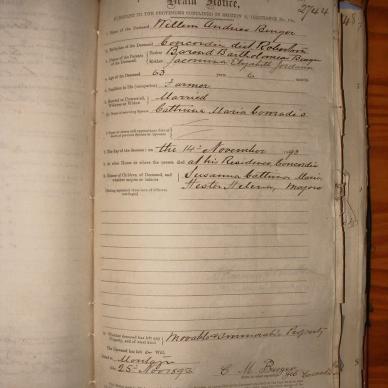 2744
Death Notice,
PURSUANT TO THE PROVISIONS CONTAINED IN SECTION 9, ORDINANCE No. 104.
1. Name of the Deceased Willem Andries Burger
2. Birthplace of the Deceased Concordia dist Robertson
3. Names of the Parents of the Deceased Father Barend Bartholomeus Burger
Mother Jacomina Elizabeth Jordaan
4. Age of the Deceased 63 years 6 months
5. Condition in life (occupation) Farmer
6. Married or Unmarried, Widower or Widow Married
Name of surviving Spouse Cathrina Maria Conradie
7. The Day of the decease : on the 14th November 1893
8. At what House or where the person died at his Residence Concordia
9. Names of Children of Deceased, and whether majors or minors Susanna Cathrina Maria
Hester Helena, Majors
10. Whether deceased has left any Property, and of what kind Movable & Immovable Property
The Deceased has left the Will.
Dated at Montagu
25th Nov 1893
C M Burger